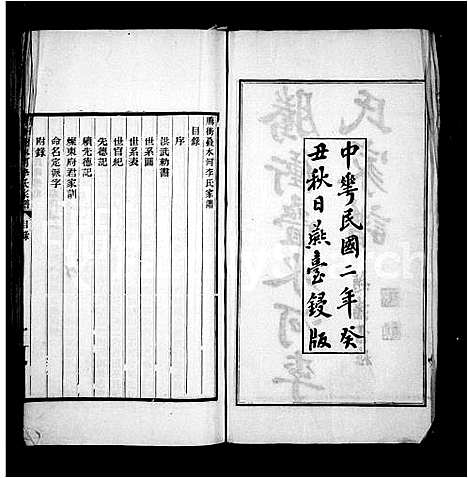 中華民國二年癸
丑秋日燕臺鋟版
騰衝疊水河李氏家譜
目錄
序
洪武勅書
世系圖
世系表
世官紀
先德記
續先德記
經東府君家訓
命名定派字
附錄